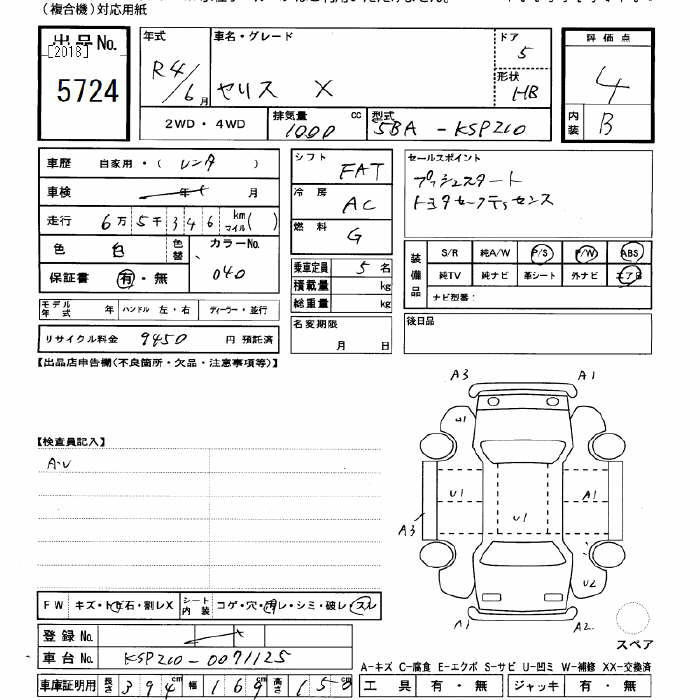 (複合機)対応用紙
出品No.
[2018]
5724
年式
R4/6月
車名・グレード
ヤリス X
ドア
5
形状
HB
評価点
4
内装
B
2WD・4WD
排気量
1000
cc
型式
5BA-KSP210
車歴
自家用・(レンタ)
車検
年
月
走行
6万5千346
km
マイル
( )
色
白
色替
カラーNo.
040
保証書
有・無
モデル年式
年
ハンドル 左・右
ディーラー・並行
リサイクル料金
9450
円 預託済
シフト
FAT
冷房
AC
燃料
G
乗車定員
5名
積載量
kg
総重量
kg
名変期限
月 日
セールスポイント
プッシュスタート
トヨタセーフティセンス
装備品
S/R
純A/W
P/S
P/W
ABS
純TV
純ナビ
革シート
外ナビ
エアB
ナビ型番:
後日品
【出品店申告欄(不良箇所・欠品・注意事項等)】
【検査員記入】
A・U
A3
A1
U1
U1
A1
A3
U2
A1
A2
スペア
FW
キズ・トビ石・割レX
シート内装
コゲ・穴・汚レ・シミ・破レ・スレ
登録No.
車台No.
KSP210-0071125
車庫証明用
長さ
394
cm
幅
169
cm
高さ
150
cm
A-キズ C-腐食 E-エクボ S-サビ U-凹ミ W-補修 XX-交換済
工具
有・無
ジャッキ
有・無